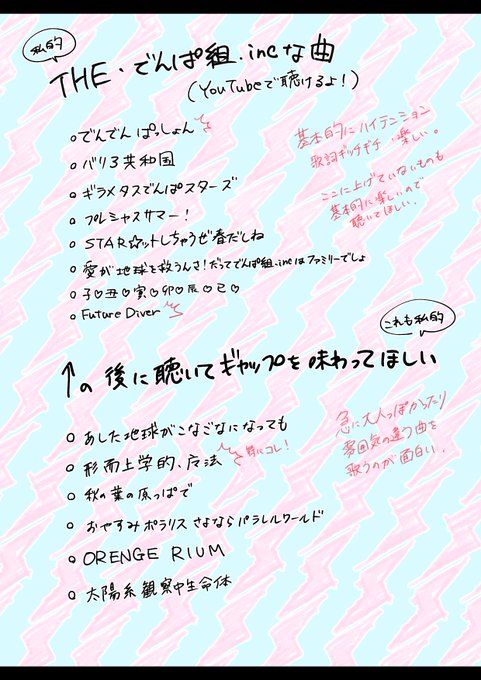 私的
THE・でんぱ組.incな曲
(YouTubeで聴けるよ!)
でんでんぱっしょん
バリ3共和国
ギラメタスでんぱスターズ
プレシャスサマー!
STAR☆ットしちゃうぜ春だしね
愛が地球を救うんさ!だってでんぱ組.incはファミリーでしょ
子♡丑♡寅♡卯♡辰♡巳♡
Future Diver
基本的にハイテンション
歌詞ギッチギチ 楽しい。
ここに上げていないものも
基本的に楽しいので
聴いてほしい。
これも私的
↑の後に聴いてギャップを味わってほしい
あした地球がこなごなになっても
形而上学的、魔法
特にコレ!
秋の葉の原っぱで
おやすみポラリスさよならパラレルワールド
ORENGE RIUM
太陽系観察中生命体
急に大人っぽかったり
雰囲気の違う曲を
歌うのが面白い。